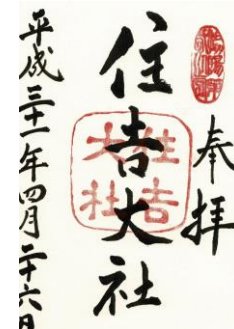 奉拝
住吉大社
住吉
大社
平成三十一年四月二十六日